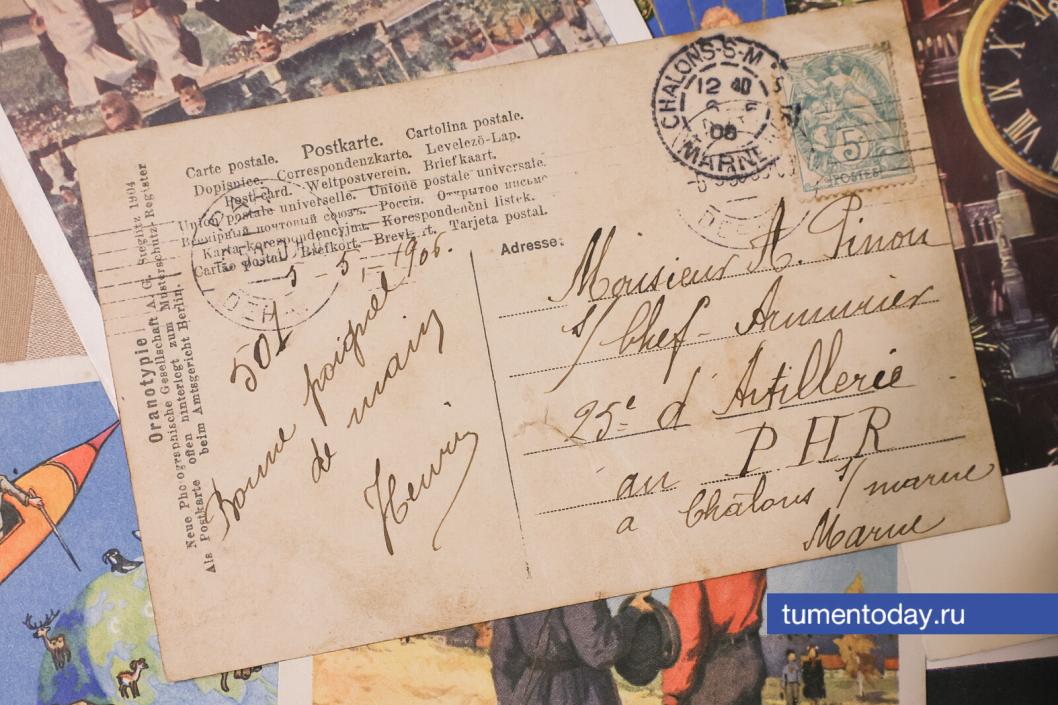 Carte postale. Postkarte. Cartolina postale.
Dopisnice. Correspondenzkarte. Levelezö-Lap.
Post-card. Weltpostverein. Briefkaart.
Union postale universelle. Unione postale universale.
Всемірный почтовый союзъ. Россія. Открытое письмо
Karta korespondencyjna. Korespondenční listek.
Cartão postal. Briefkort. Brevkort. Tarjeta postal.
Oranotypie
Neue Photographische Gesellschaft A. G. Steglitz 1904
Als Postkarte offen hinterlegt zum Musterschutz-Register
beim Amtsgericht Berlin.
5 5 1906.
507
Bonne poignée
de main
Henri
CHALONS-S-M
12 40
06
MARNE
5
POSTES
Adresse:
Monsieur A. Pinon
s/ Chef-Armurier
25e d'Artillerie
au PHR
a Châlons s/ marne
Marne
XII
I
VIII
VII
VI
tumentoday.ru